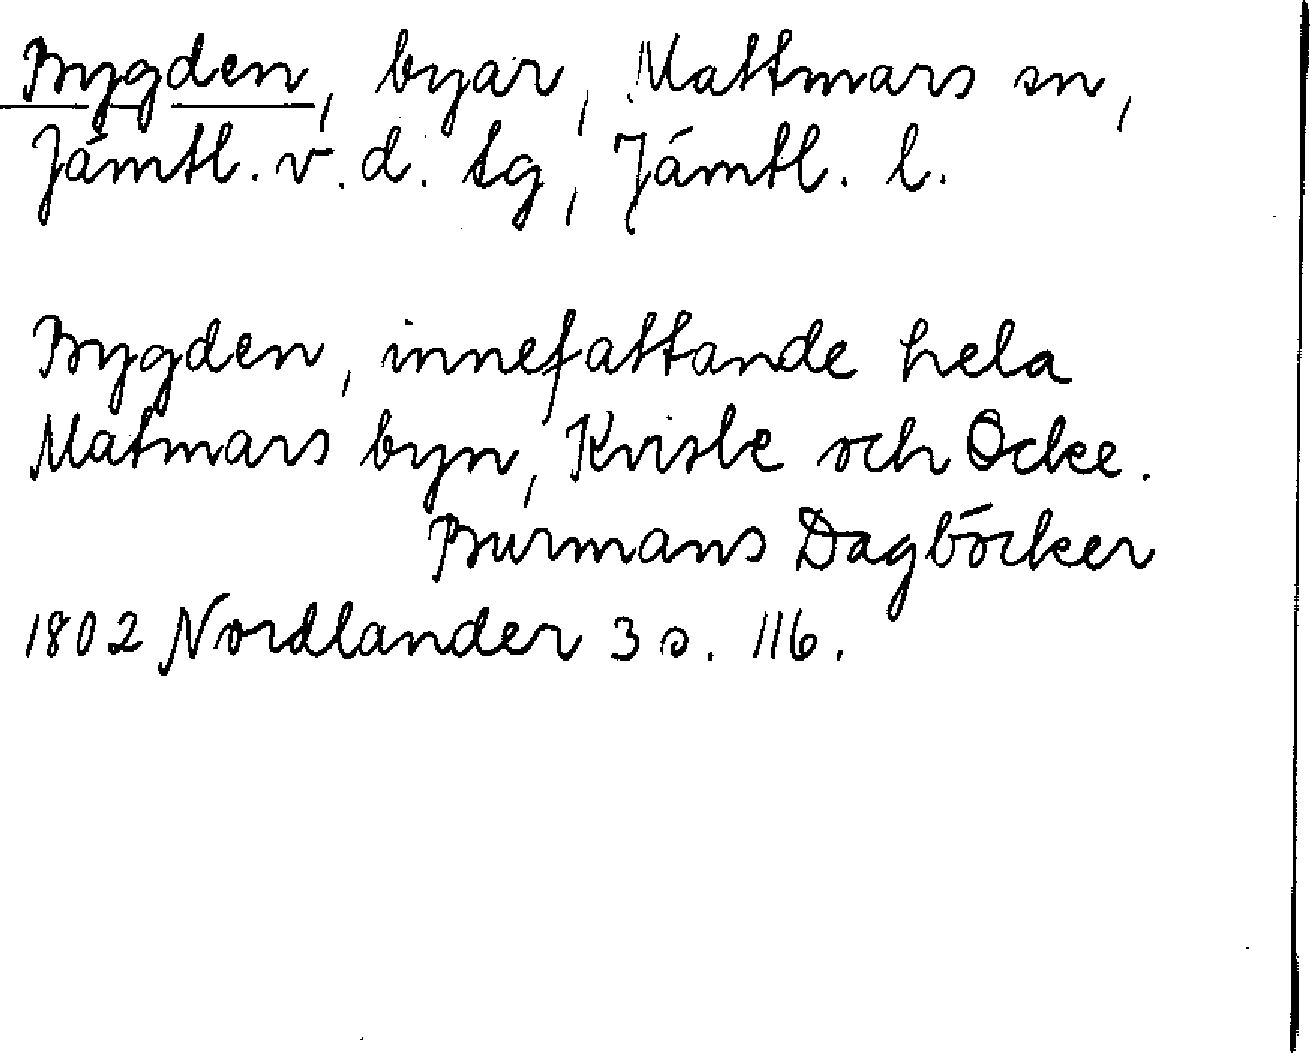 Bygden, byar, Mattmars sn,
Jämtl. v. d. tg, Jämtl. l.
Bygden, innefattande hela
Matmars byn, Kvisle och Ocke.
Burmans Dagböcker
1802 Nordlander 3 s. 116.